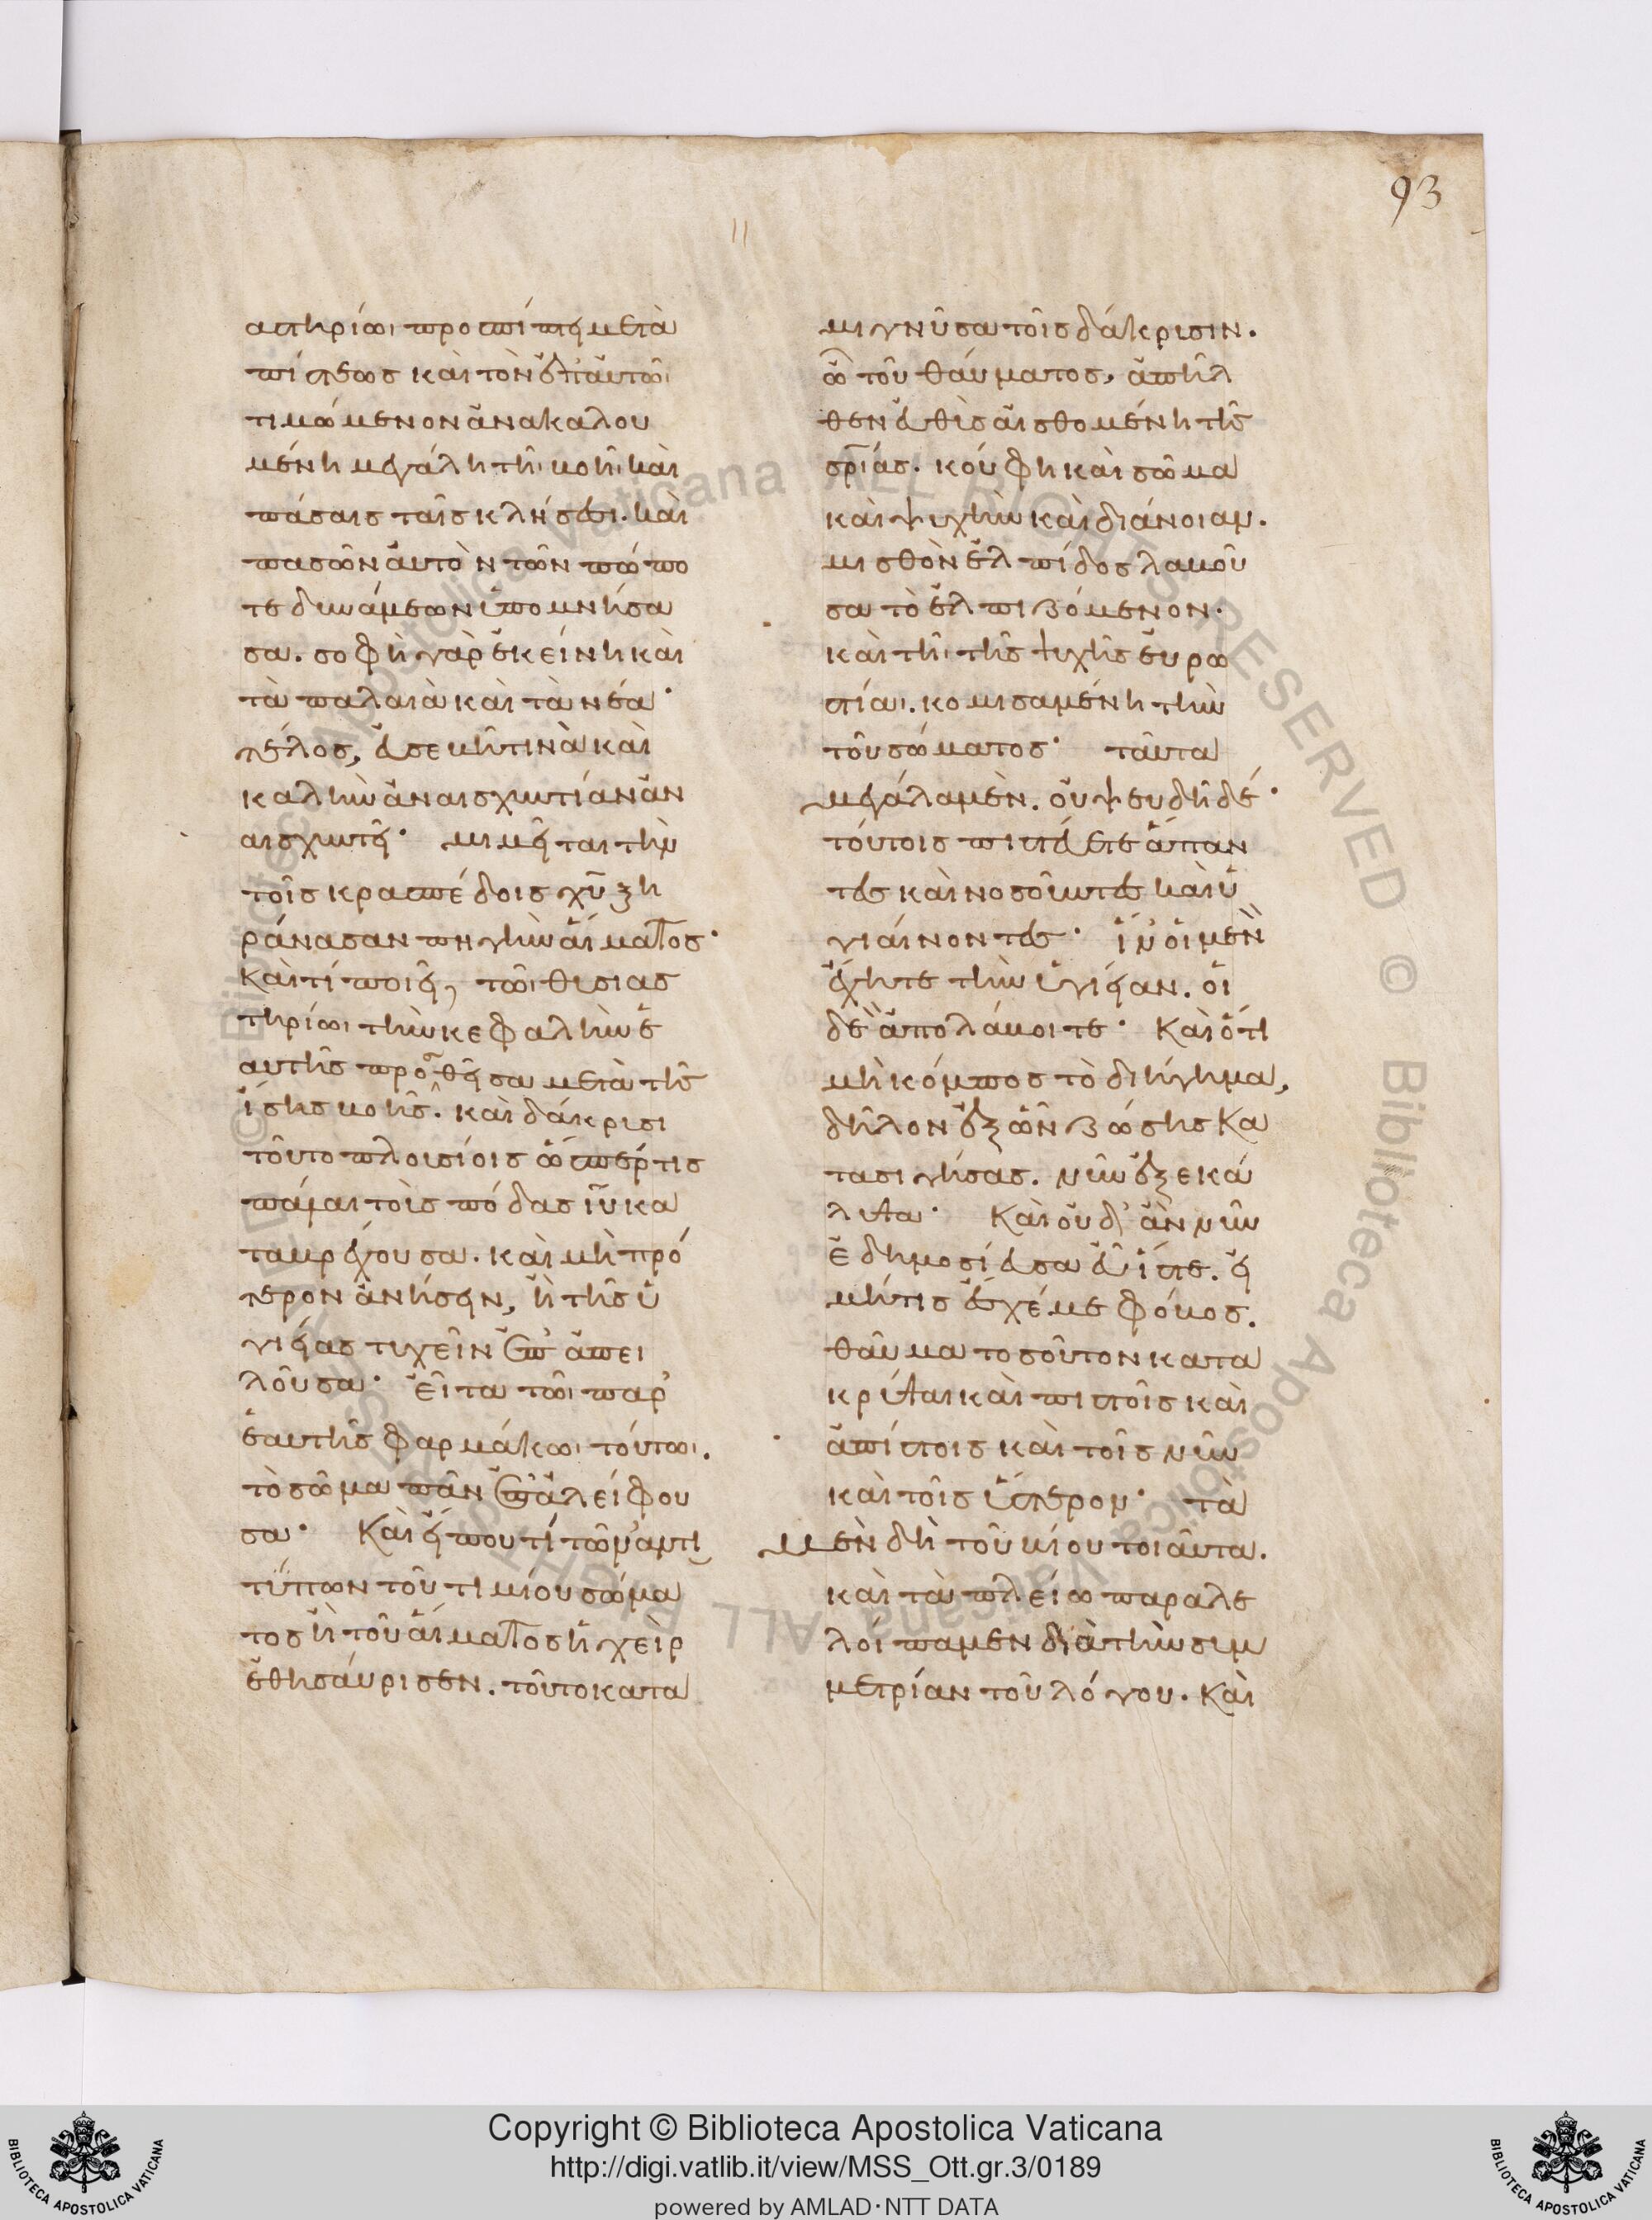 93
αστηρίωι προσπίπτει μετὰ
πίστεως καὶ τὸν ἐπ' αὐτῶι
τιμώμενον ἀνακαλου
μένη μεγάλη τῆι βοῆι καὶ
πάσαις ταῖς κλήσεσι. καὶ
πασῶν αὐτὸν τῶν πώπο
τε δυνάμεων ὑπομνήσα
σα. σοφὴ γὰρ ἐκείνη καὶ
τὰ παλαιὰ καὶ τὰ νέα·
τέλος, εὐσεβῆ τινὰ καὶ
καλὴν ἀναισχυντίαν ἀν
αισχυντεῖ· μιμεῖται τὴν
τοῖς κρασπέδοις χῦ ξη
ράνασαν πηγὴν αἵματος·
Καὶ τί ποιεῖ, τῶι θυσιασ
τηρίωι τὴν κεφαλὴν ἑ
αυτῆς προσθεῖσα μετὰ τῆς
ἴσης βοῆς. καὶ δάκρυσι
τοῦτο πλουσίοις ὥσπέρ τις
πάλαι τοὺς πόδας ἰῦ κα
ταβρέχουσα. καὶ μὴ πρό
τερον ἀνήσειν, ἢ τῆς ὑ
γιείας τυχεῖν ἐπαπει
λοῦσα· εἶτα τῶι παρ'
ἑαυτῆς φαρμάκωι τούτωι.
τὸ σῶμα πᾶν ἐπαλείφου
σα· Καὶ εἴ που τί τῶν ἀντι
τύπων τοῦ τιμίου σώμα
τος ἢ τοῦ αἵματος ἡ χεὶρ
ἐθησαύρισεν. τοῦτο κατα
μιγνῦσα τοῖς δάκρυσιν.
ὢ τοῦ θαύματος, ἀπῆλ
θεν εὐθὺς αἰσθομένη τῆς
σρίας. κούφη καὶ σῶμα
καὶ ψυχὴν καὶ διάνοιαν.
μισθὸν ἐλπίδος λαβοῦ
σα τὸ ἐλπιζόμενον.
καὶ τῆι τῆς ψυχῆς εὐρω
στίαι. κομισαμένη τὴν
τοῦ σώματος· ταῦτα
μεγάλα μὲν. οὐ ψευδῆ δέ·
τούτοις πιστεύετε ἅπαν
τες καὶ νοσοῦντες καὶ ὑ
γιαίνοντες· ἵν' οἱ μὲν
ἔχητε τὴν ὑγίειαν. οἱ
δὲ ἀπολάβοιτε· Καὶ ὅτι
μὴ κόμπος τὸ διήγημα,
δῆλον ἐξ ὧν ζώσης κα
τασιγήσας. νῦν ἐξεκά
λυψα· Καὶ οὐδ' ἂν νῦν
ἐδημοσίευσα εὖ ἴστε. εἰ
μήτις ἔσχέ με φόβος.
θαῦμα τοσοῦτον κατα
κρύψαι καὶ πιστοῖς καὶ
ἀπίστοις καὶ τοῖς νῦν
καὶ τοῖς ὕστερον· τὰ
μὲν δὴ τοῦ βίου τοιαῦτα.
καὶ τὰ πλείω παραλε
λοίπαμεν διὰ τὴν συμ
μετρίαν τοῦ λόγου. Καὶ
Copyright © Biblioteca Apostolica Vaticana
http://digi.vatlib.it/view/MSS_Ott.gr.3/0189
powered by AMLAD·NTT DATA